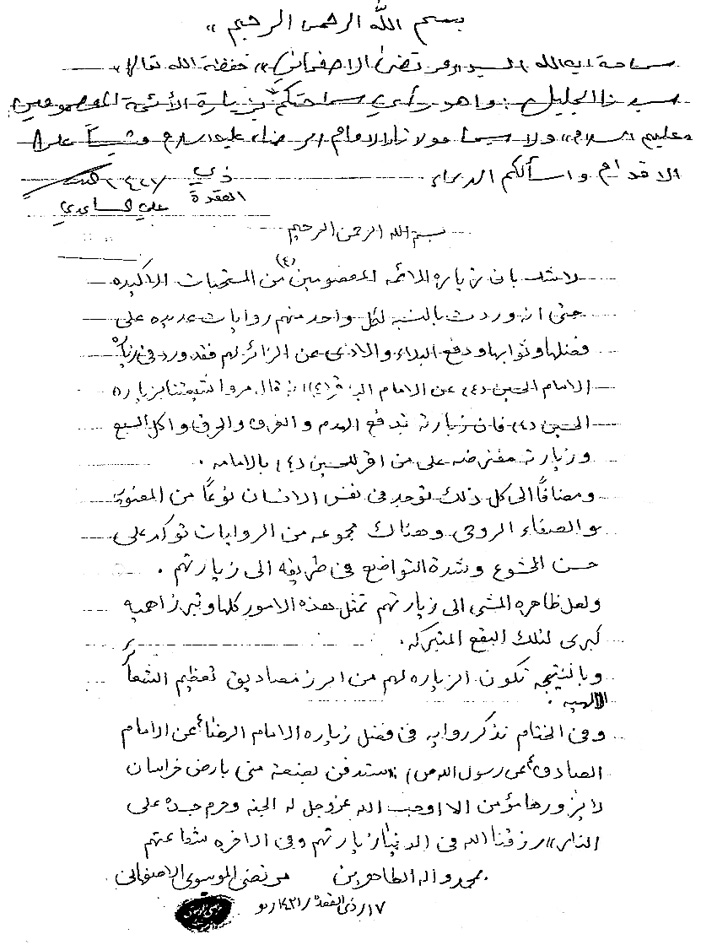 بسم الله الرحمن الرحيم
سماحة آية الله السيد مرتضى الاصفهاني حفظه الله تعالى
سيدنا الجليل: ما هو رأي سماحتكم بزيارة الأئمة المعصومين
عليهم السلام ولا سيما مولانا الامام الرضا عليه السلام مشياً على
الاقدام واسألكم الدعاء
ذي القعدة
علي
بسم الله الرحمن الرحيم
لا شك بان زياره الائمه المعصومين (ع) من المستحبات الاكيده
حتى ان وردت بالنسبه لكل واحد منهم روايات عديده على
فضلها وثوابها ودفع البلاء والاذى عن الزائر لهم فقد ورد في زياره
الامام الحسين (ع) عن الامام الباقر (ع) قال مروا شيعتنا بزياره
الحسين (ع) فان زيارته تدفع الهدم والغرق والحرق واكل السبع
وزيارته مفترضه على من اقر للحسين (ع) بالامامه .
ومضافاً الى كل ذلك توجد في نفس الانسان نوعاً من المعنويه
والصفاء الروحي وهناك مجموعه من الروايات توكد على
حسن الخشوع وشدة التواضع في طريقه الى زيارتهم .
ولعل ظاهره المشي الى زيارتهم تمثل هذه الامور كلها وتبرز اهميه
كبرى لتلك البقع المتبركه .
وبالنتيجه تكون الزياره لهم من ابرز مصاديق تعظيم الشعائر
الالهيه .
وفي الختام نذكر روايه في فضل زياره الامام الرضا ع عن الامام
الصادق ع عن رسول الله (ص) «ستدفن بضعة مني بارض خراسان
لا يزورها مؤمن الا اوجب الله عز وجل له الجنه وحرم جسده على
النار» رزقنا الله في الدنيا زيارتهم وفي الاخره شفاعتهم
بمحمد واله الطاهرين مرتضى الموسوي الاصفهاني
١٧ / ذي القعده /